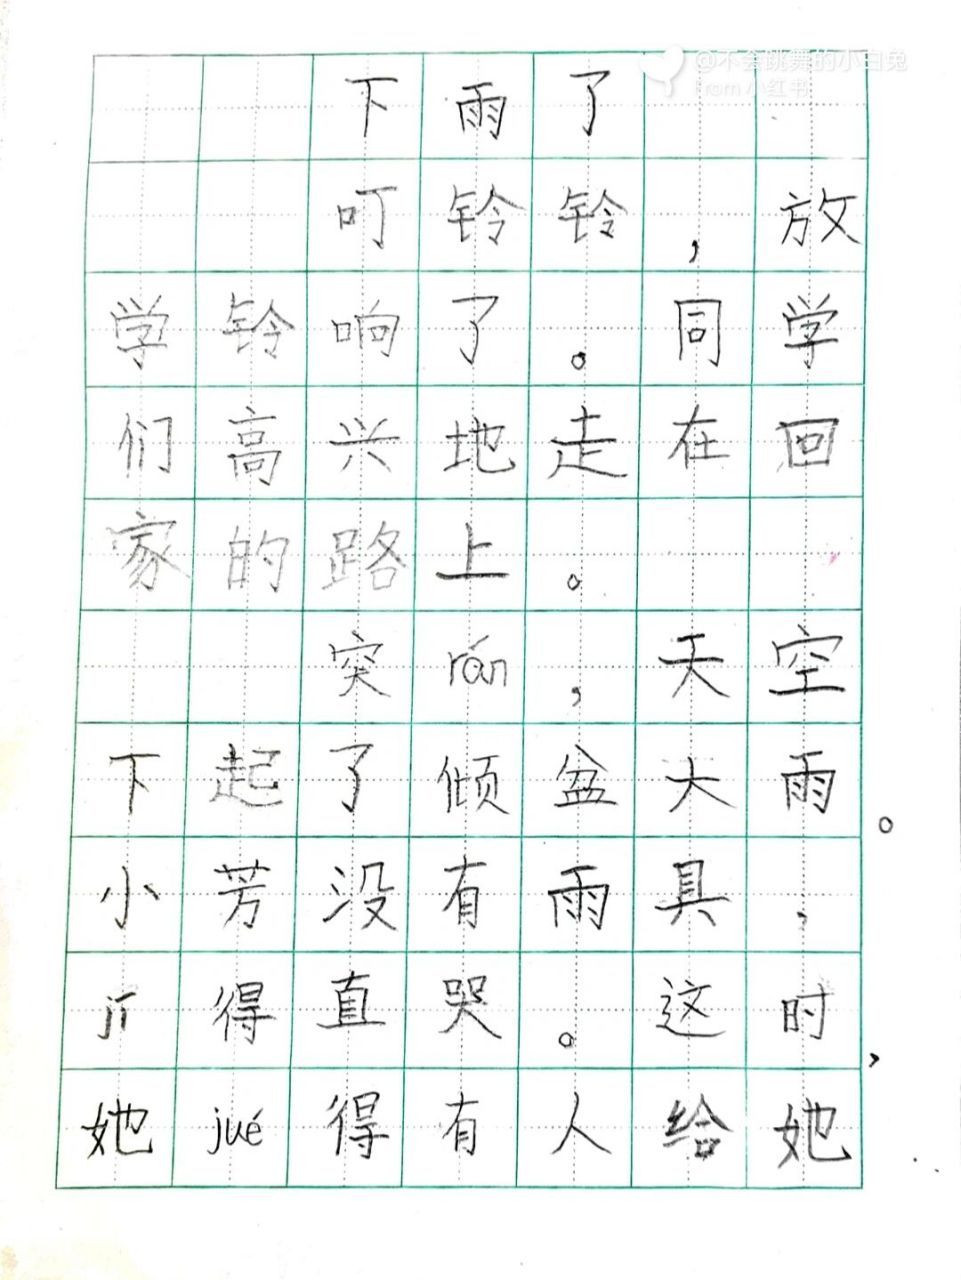 @不会跳舞的小白兔
From 小红书
下雨了
叮铃铃，放
学铃响了。同学
们高兴地走在回
家的路上。
突rán，天空
下起了倾盆大雨。
小芳没有雨具，
jí得直哭。这时，
她jué得有人给她